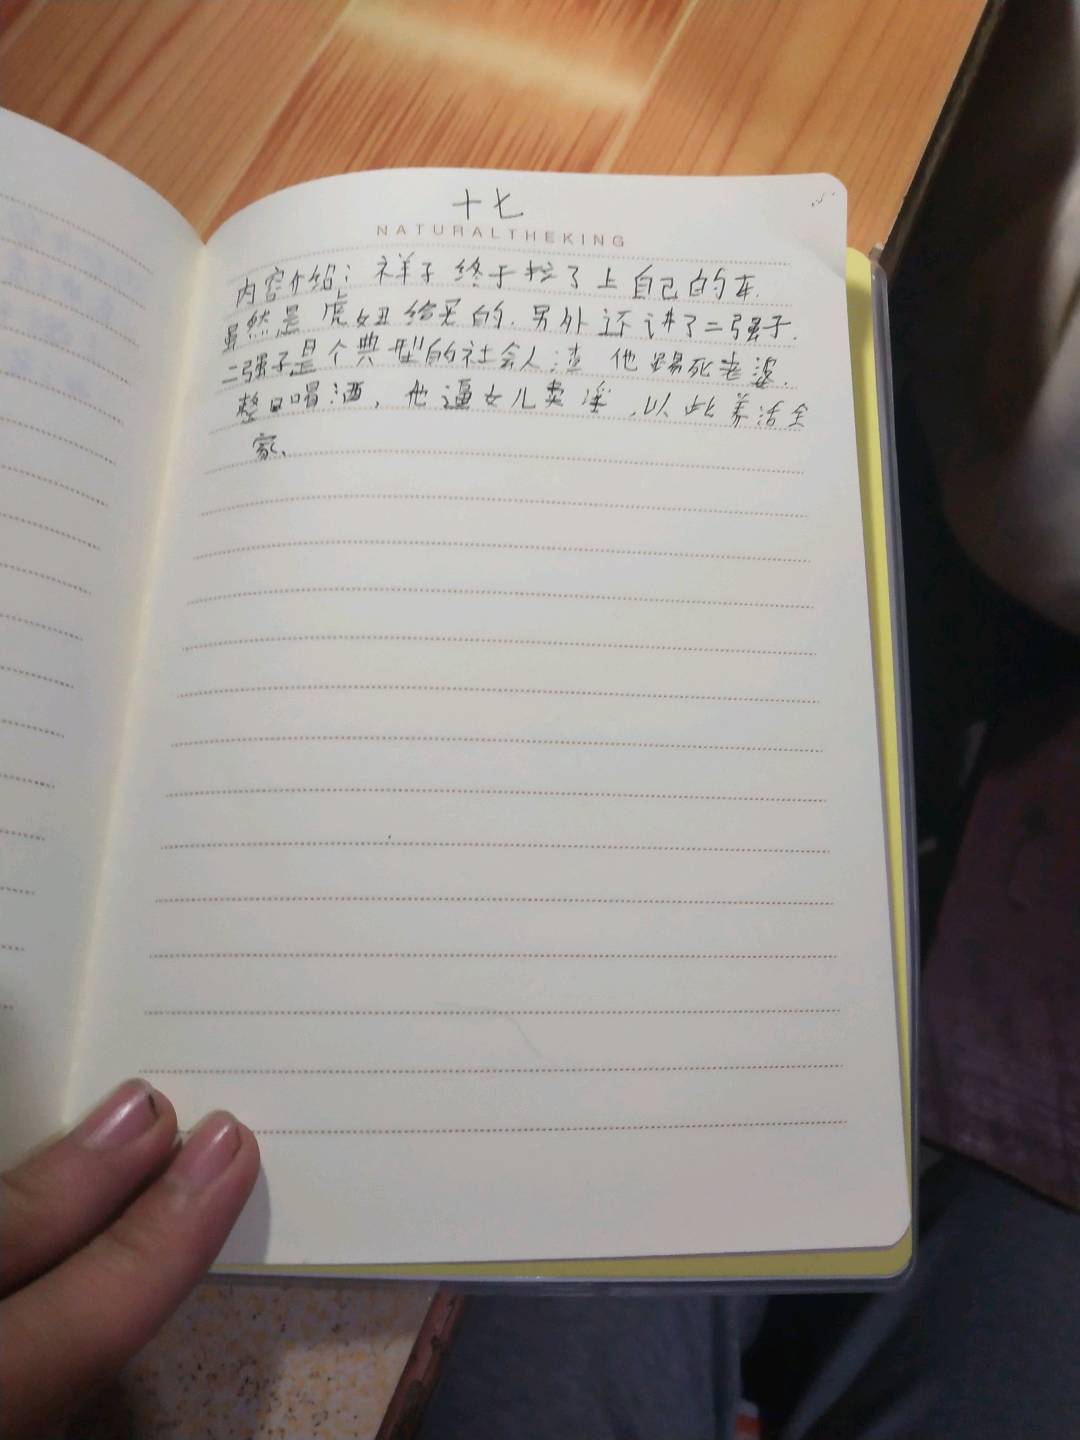 十七
NATURALTHEKING
内容介绍：祥子终于拉了上自己的车.
虽然是虎妞给买的.另外还讲了二强子.
二强子是个典型的社会人渣 他踢死老婆.
整日喝酒，他逼女儿卖淫，以此养活全
家、